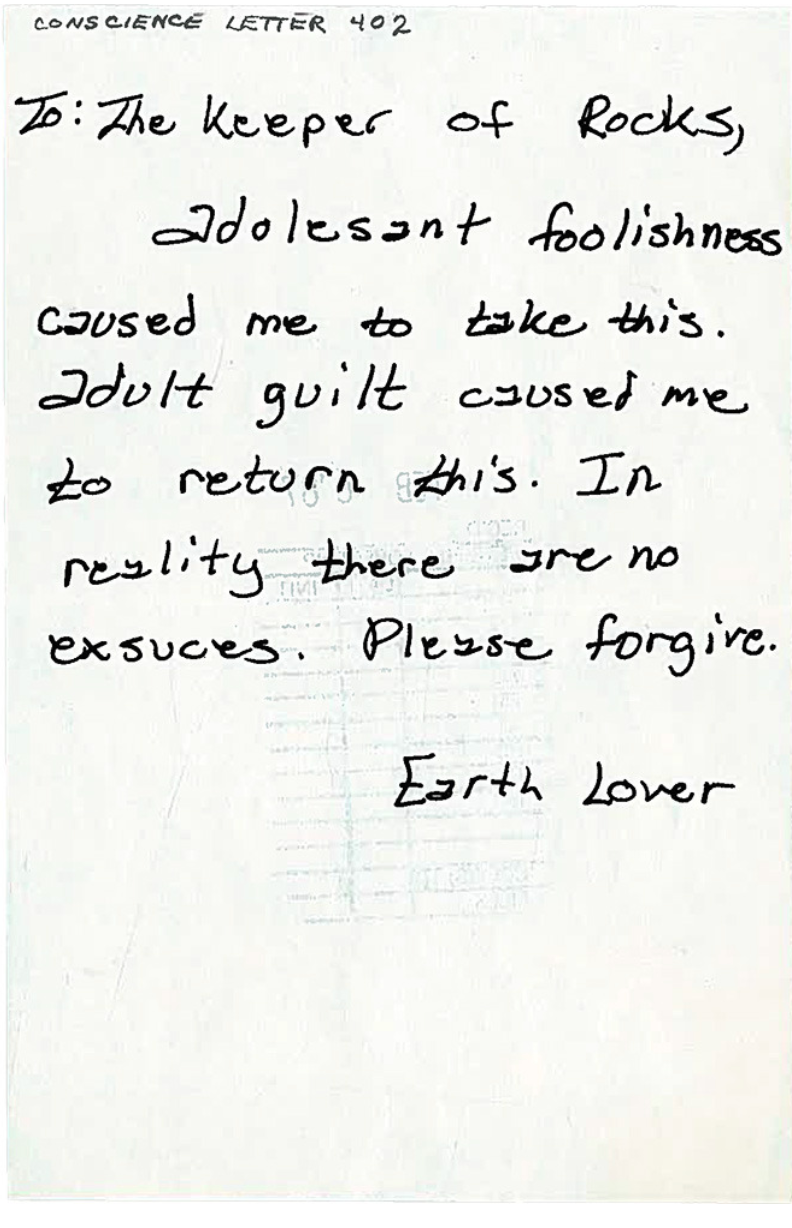 CONSCIENCE LETTER 402
To: The Keeper of Rocks,
adolesant foolishness
caused me to take this.
adult guilt caused me
to return this. In
reality there are no
exsuces. Please forgive.
Earth Lover